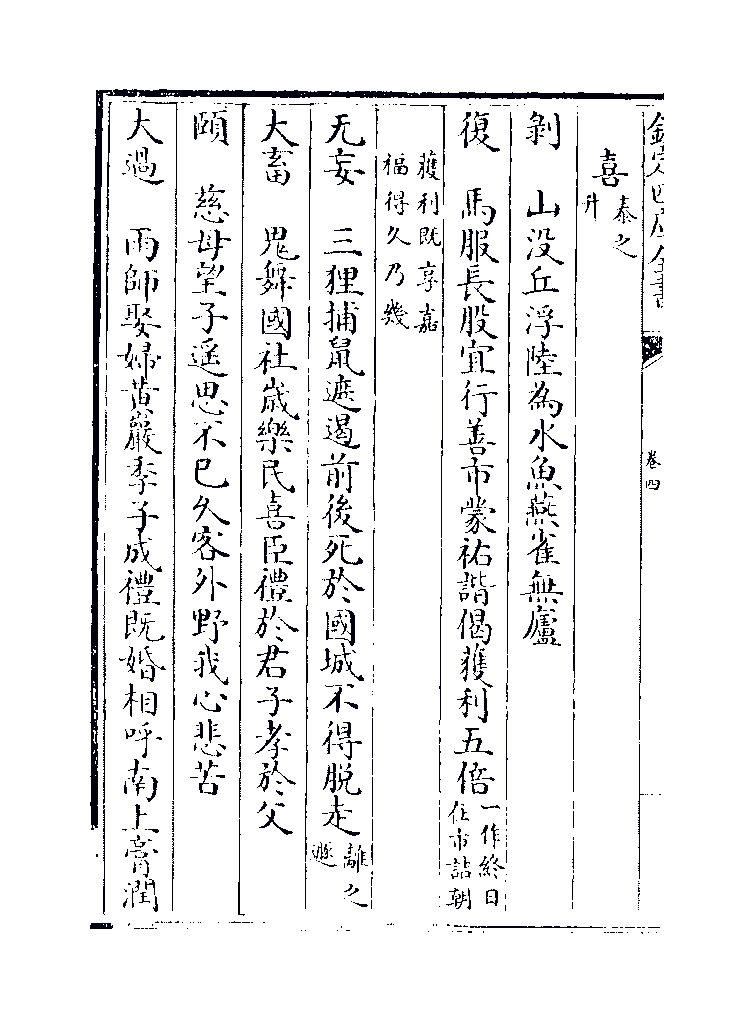 欽定四庫全書
卷四
喜泰之升
剝　山没丘浮陸為水魚燕雀無廬
復　馬服長股宜行善市蒙祐諧偈獲利五倍一作終日在市詰朝
獲利既享嘉福得久乃幾
无妄　三狸捕鼠遮遏前後死於國城不得脱走離之遯
大畜　鬼舞國社歲樂民喜臣禮於君子孝於父
頤　慈母望子遥思不已久客外野我心悲苦
大過　雨師娶婦黄巖季子成禮既婚相呼南上膏潤